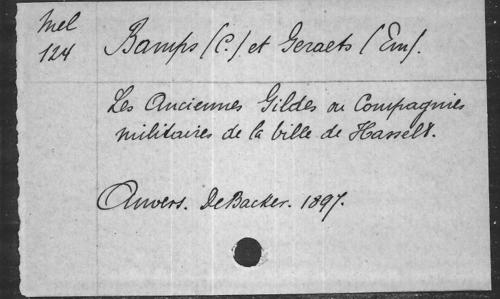 Mel
124
Bamps (C.) et Geraets (Em).
Les Anciennes Gildes ou Compagnies
militaires de la ville de Hasselt.
Anvers. De Backer. 1897.